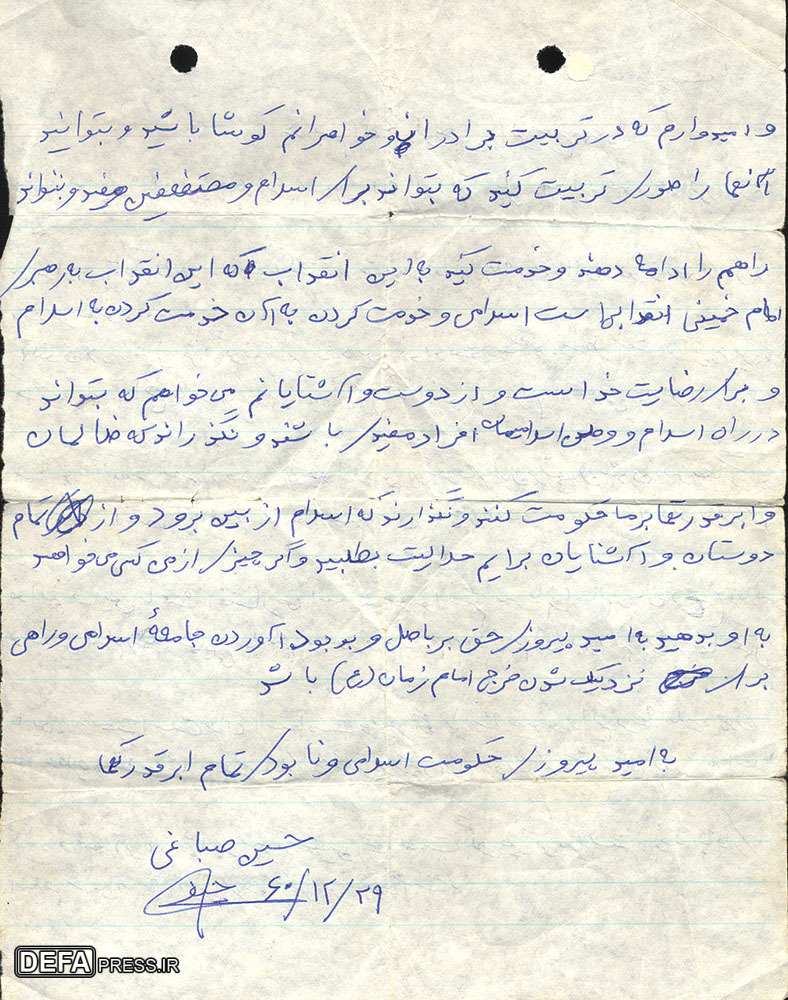 و امیدوارم که در تربیت برادران و خواهرانم کوشا باشید و بتوانید
آنها را طوری تربیت کنید که بتوانند برای اسلام و مستضعفین مفید و بتوانند
راهم را ادامه دهند و خدمت کنید به این انقلاب که این انقلاب به رهبری
امام خمینی انقلابی است اسلامی و خدمت کردن به آن خدمت کردن به اسلام
و برای رضایت خدا است و از دوست و آشنایانم می‌خواهم که بتوانند
در راه اسلام و وطن اسلامیمان افراد مفیدی باشند و نگذارند که ظالمان
و ابرقدرتها بر ما حکومت کنند و نگذارند که اسلام از بین برود و از تمام
دوستان و آشنایان برایم حلالیت بطلبید و اگر چیزی از من کسی می‌خواهد
به او بدهید به امید پیروزی حق بر باطل و بوجود آوردن جامعهٔ اسلامی و راهی
برای نزدیک شدن فرج امام زمان (عج) باشد
به امید پیروزی حکومت اسلامی و نابودی تمام ابرقدرتها
حسین صباغی
۶۰/۱۲/۲۹
DEFAPRESS.IR